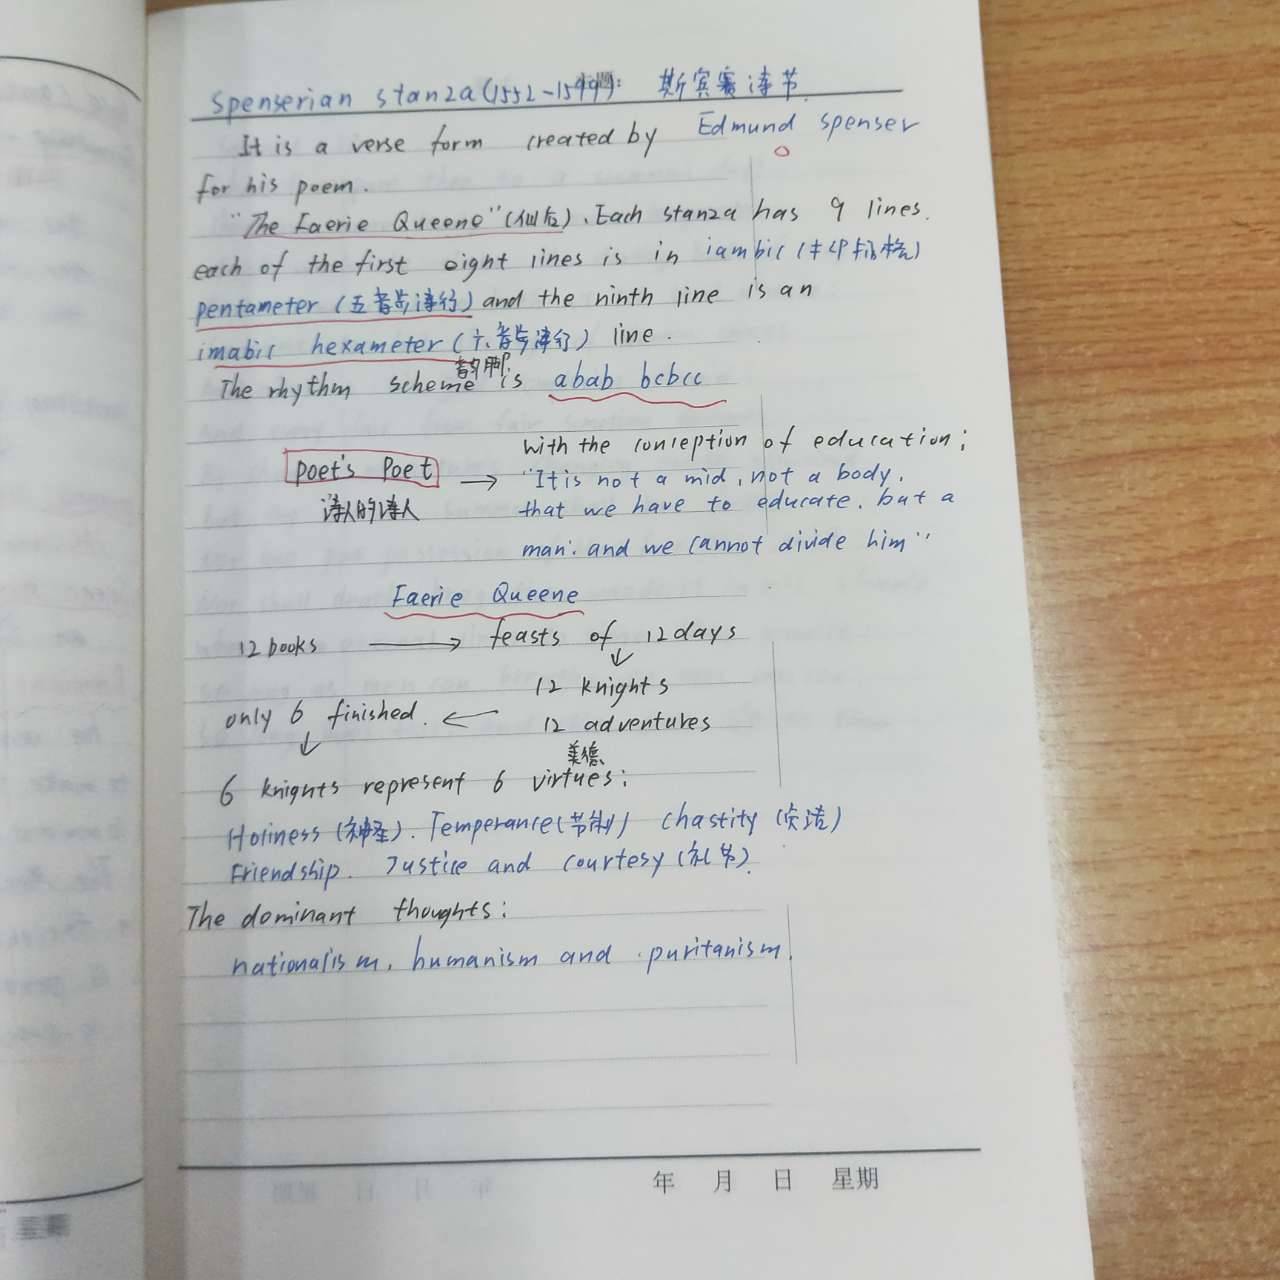 Spenserian stanza (1552-1599): 斯宾赛诗节.
It is a verse form created by Edmund Spenser
for his poem.
"The Faerie Queene" (仙后). Each stanza has 9 lines.
each of the first eight lines is in iambic (
pentameter (五音步诗行) and the ninth line is an
imabic hexameter (六音步诗行) line.
韵脚
The rhythm scheme is abab bcbcc
With the conception of education;
Poet's Poet → "It is not a mid, not a body.
诗人的诗人 that we have to educate. but a
man. and we cannot divide him"
Faerie Queene
12 books → feasts of 12 days
↓
12 knights
only 6 finished. ← 12 adventures
↓ 美德
6 knights represent 6 virtues:
Holiness (神圣). Temperance (节制) chastity (贞洁)
Friendship. Justice and courtesy (礼节).
The dominant thoughts:
nationalism, humanism and puritanism.
年 月 日 星期